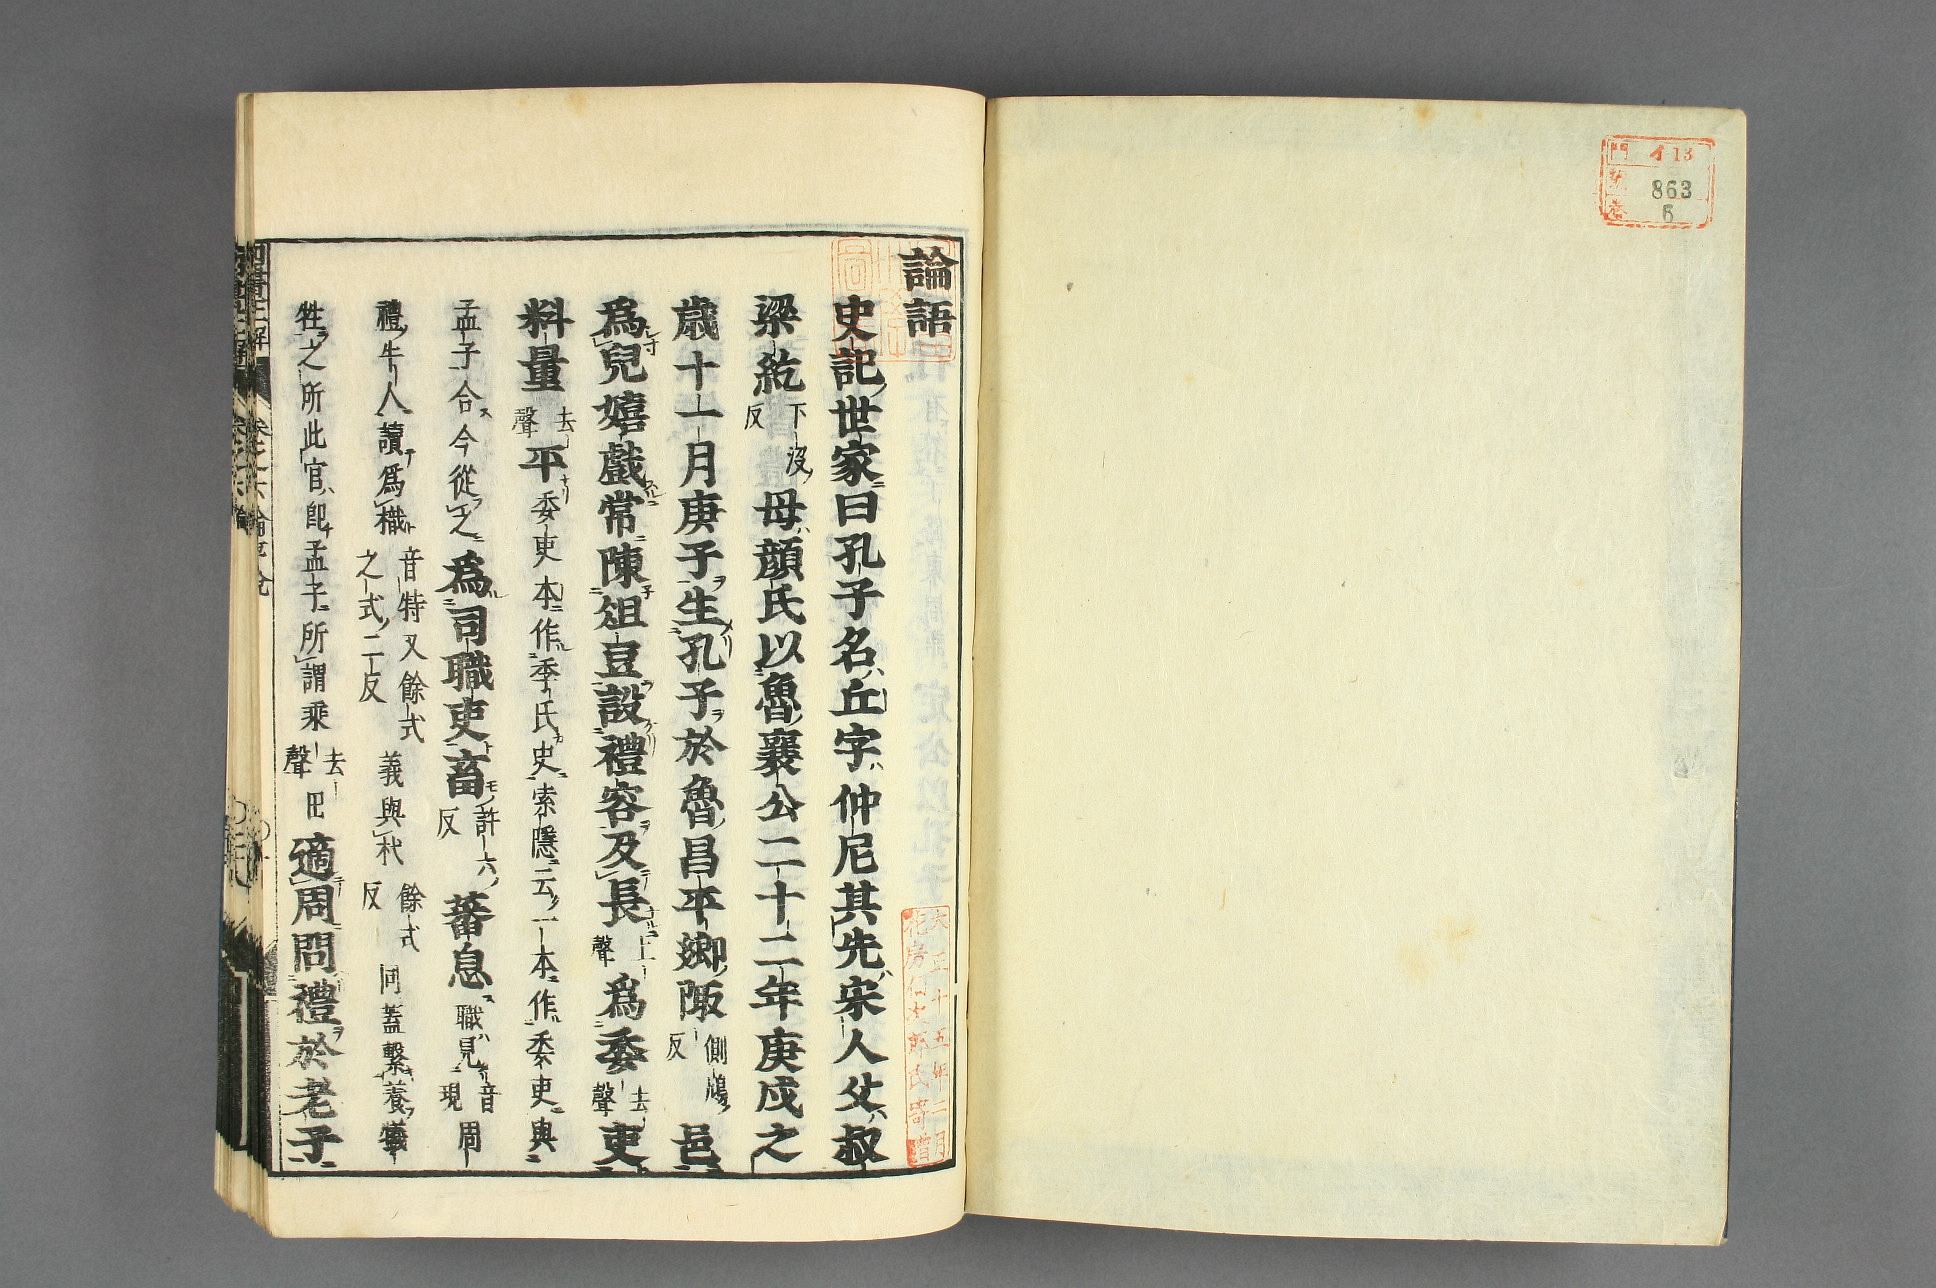 門 イ13
863
6
論語
史記世家曰孔子名丘字仲尼其先宋人父叔
梁紇下没反母顔氏以魯襄公二十二年庚戌之
歳十一月庚子生孔子於魯昌平郷陬側鳩反邑
爲兒嬉戯常陳俎豆設禮容及長上聲爲委去聲吏
料量去聲平委吏本作季氏史索隱云一本作委吏與
孟子合今從之爲司職吏畜許六反蕃息職見音現周
禮牛人讀爲樴音特又餘式之式二反義與杙餘式反同蓋繋養犧
牲之所此官即孟子所謂乘去聲田適周問禮於老子
大正十五年二月